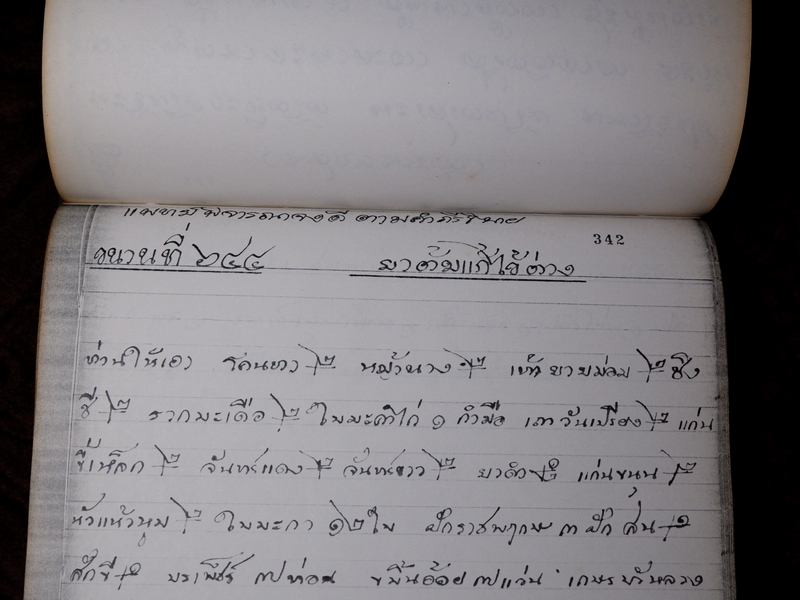 แพทย์พิจารณาจงดี ตามคำภีร์
342
ขนานที่ ๖๔๔ ยาต้มแก้ไข้ต่าง
ท่านให้เอา รากนาว ๒ หญ้านาง ๒ เท้ายายม่อม ๒ ชิง
ชี่ ๒ รากมะเดื่อ ๒ ใบมะคำไก่ ๑ กำมือ เถาวันเปรียง ๒ แก่น
ขี้เหล็ก ๒ จันทร์แดง ๒ จันทร์ขาว ๒ ยาดำ ๑ แก่นขนุน ๒
หัวแห้วหมู ๒ ใบมะกา ๑๒ ใบ ฝักราชพฤกษ ๓ ฝัก ส้น ๑
ดีกขี ๑ บรเพ็ชร์ ๗ ท่อน ขมิ้นอ้อย ๗ แว่น เกษร